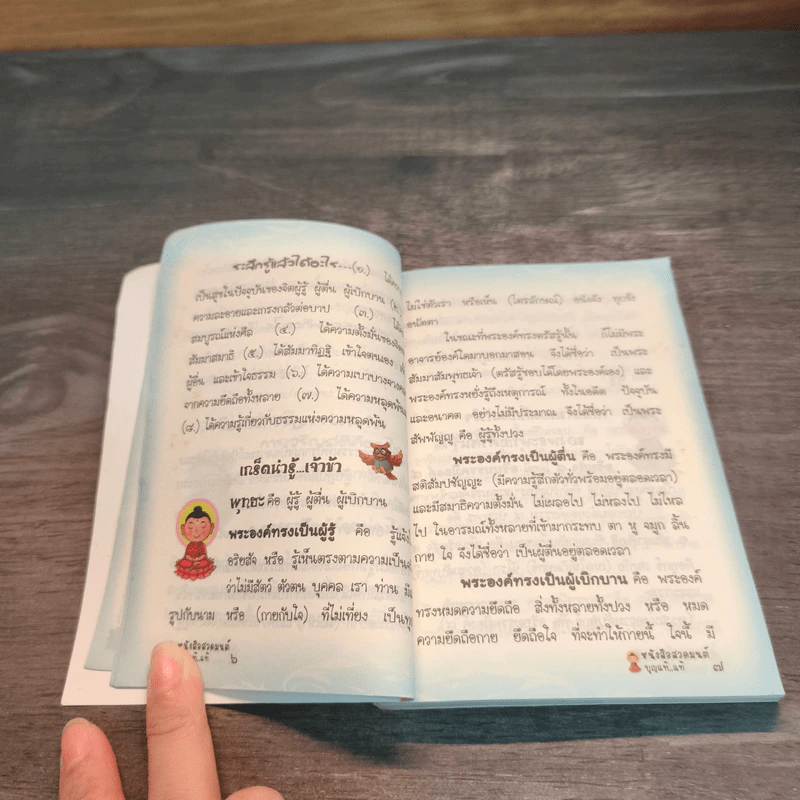 ระลึกรู้แล้วได้อะไร....(๑.) ได้ความ
เป็นสุขในปัจจุบันของจิตผู้รู้ ผู้ตื่น ผู้เบิกบาน (๒.)
ความละอายและเกรงกลัวต่อบาป (๓.) ได้
สมบูรณ์แห่งศีล (๔.) ได้ความตั้งมั่นของจิต
สัมมาสมาธิ (๕.) ได้สัมมาทิฏฐิ เข้าใจตนเอง
ผู้อื่น และเข้าใจธรรม (๖.) ได้ความเบาบางจาง
จากความยึดถือทั้งหลาย (๗.) ได้ความหลุดพ้น
(๘.) ได้ความรู้เกี่ยวกับธรรมแห่งความหลุดพ้น
เกร็ดน่ารู้...เจ้าข้า
พุทธะ คือ ผู้รู้ ผู้ตื่น ผู้เบิกบาน
พระองค์ทรงเป็นผู้รู้ คือ รู้แจ้ง
อริยสัจ หรือ รู้เห็นตรงตามความเป็น
ว่าไม่มีสัตว์ ตัวตน บุคคล เรา ท่าน มี
รูปกับนาม หรือ (กายกับใจ) ที่ไม่เที่ยง เป็นทุ
หนังสือสวดมนต์
แท้
๖
ไม่ใช่ตัวเรา หรือเห็น (ไตรลักษณ์) อนิจจัง ทุกขัง
อนัตตา
ในขณะที่พระองค์ทรงตรัสรู้นั้น ก็ไม่มีพระ
อาจารย์องค์ใดมาบอกมาสอน จึงได้ชื่อว่า เป็นพระ
สัมมาสัมพุทธเจ้า (ตรัสรู้ชอบได้โดยพระองค์เอง) และ
พระองค์ทรงหยั่งรู้ถึงเหตุการณ์ ทั้งในอดีต ปัจจุบัน
และอนาคต อย่างไม่มีประมาณ จึงได้ชื่อว่า เป็นพระ
สัพพัญญู คือ ผู้รู้ทั้งปวง
พระองค์ทรงเป็นผู้ตื่น คือ พระองค์ทรงมี
สติสัมปชัญญะ (มีความรู้สึกตัวทั่วพร้อมอยู่ตลอดเวลา)
และมีสมาธิความตั้งมั่น ไม่เผลอไป ไม่หลงไป ไม่ไหล
ไป ในอารมณ์ทั้งหลายที่เข้ามากระทบ ตา หู จมูก ลิ้น
กาย ใจ จึงได้ชื่อว่า เป็นผู้ตื่นอยู่ตลอดเวลา
พระองค์ทรงเป็นผู้เบิกบาน คือ พระองค์
ทรงหมดความยึดถือ สิ่งทั้งหลายทั้งปวง หรือ หมด
ความยึดถือกาย ยึดถือใจ ที่จะทำให้กายนี้ ใจนี้ มี
หนังสือสวดมนต์
บุญแท้..แท้
๗